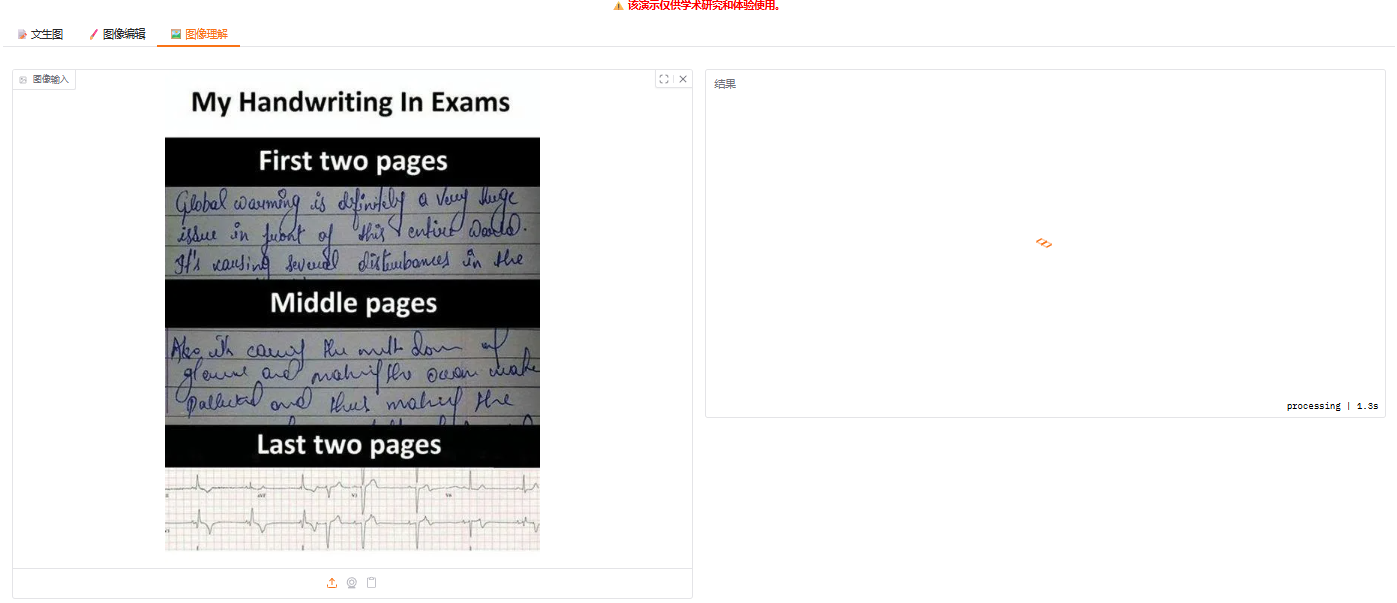 ⚠ 该演示仅供学术研究和体验使用。
文生图 图像编辑 图像理解
图像输入
结果
My Handwriting In Exams
First two pages
Global warming is definitely a very huge
issue in front of this entire World.
It's causing several disturbances in the
Middle pages
Also the down of
and making the ocean
and thus making the
Last two pages
aVR V1 V4
processing | 1.3s